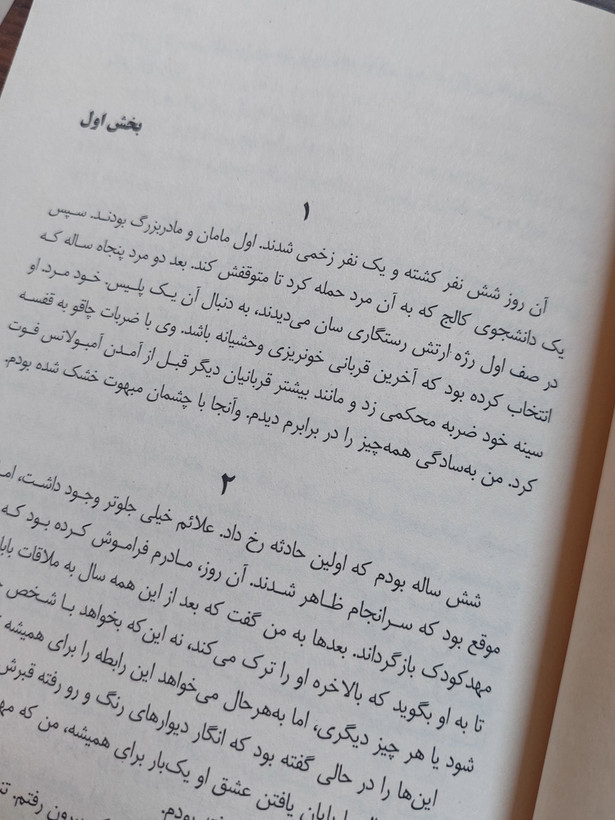 بخش اول
۱
آن روز شش نفر کشته و یک نفر زخمی شدند. اول مامان و مادربزرگ بودند. سپس
یک دانشجوی کالج که به آن مرد حمله کرد تا متوقفش کند. بعد دو مرد پنجاه ساله که
در صف اول رژه ارتش رستگاری سان می‌دیدند، به دنبال آن یک پلیس. خود مرد. او
انتخاب کرده بود که آخرین قربانی خونریزی وحشیانه باشد. وی با ضربات چاقو به قفسه
سینه خود ضربه محکمی زد و مانند بیشتر قربانیان دیگر قبل از آمدن آمبولانس فوت
کرد. من به‌سادگی همه‌چیز را در برابرم دیدم. وآنجا با چشمان مبهوت خشک شده بودم.
۲
شش ساله بودم که اولین حادثه رخ داد. علائم خیلی جلوتر وجود داشت،
موقع بود که سرانجام ظاهر شدند. آن روز، مادرم فراموش کرده بود که
مهدکودک بازگرداند. بعدها به من گفت که بعد از این همه سال به ملاقات
تا به او بگوید که بالاخره او را ترک می‌کند، نه این‌که بخواهد با شخص
شود یا هر چیز دیگری، اما به‌هرحال می‌خواهد این رابطه را برای همیشه
این‌ها را در حالی گفته بود که انگار دیوارهای رنگ و رو رفته قبرش
پایان یافتن عشق او یک‌بار برای همیشه، من که
بودم.
بیرون رفتم.